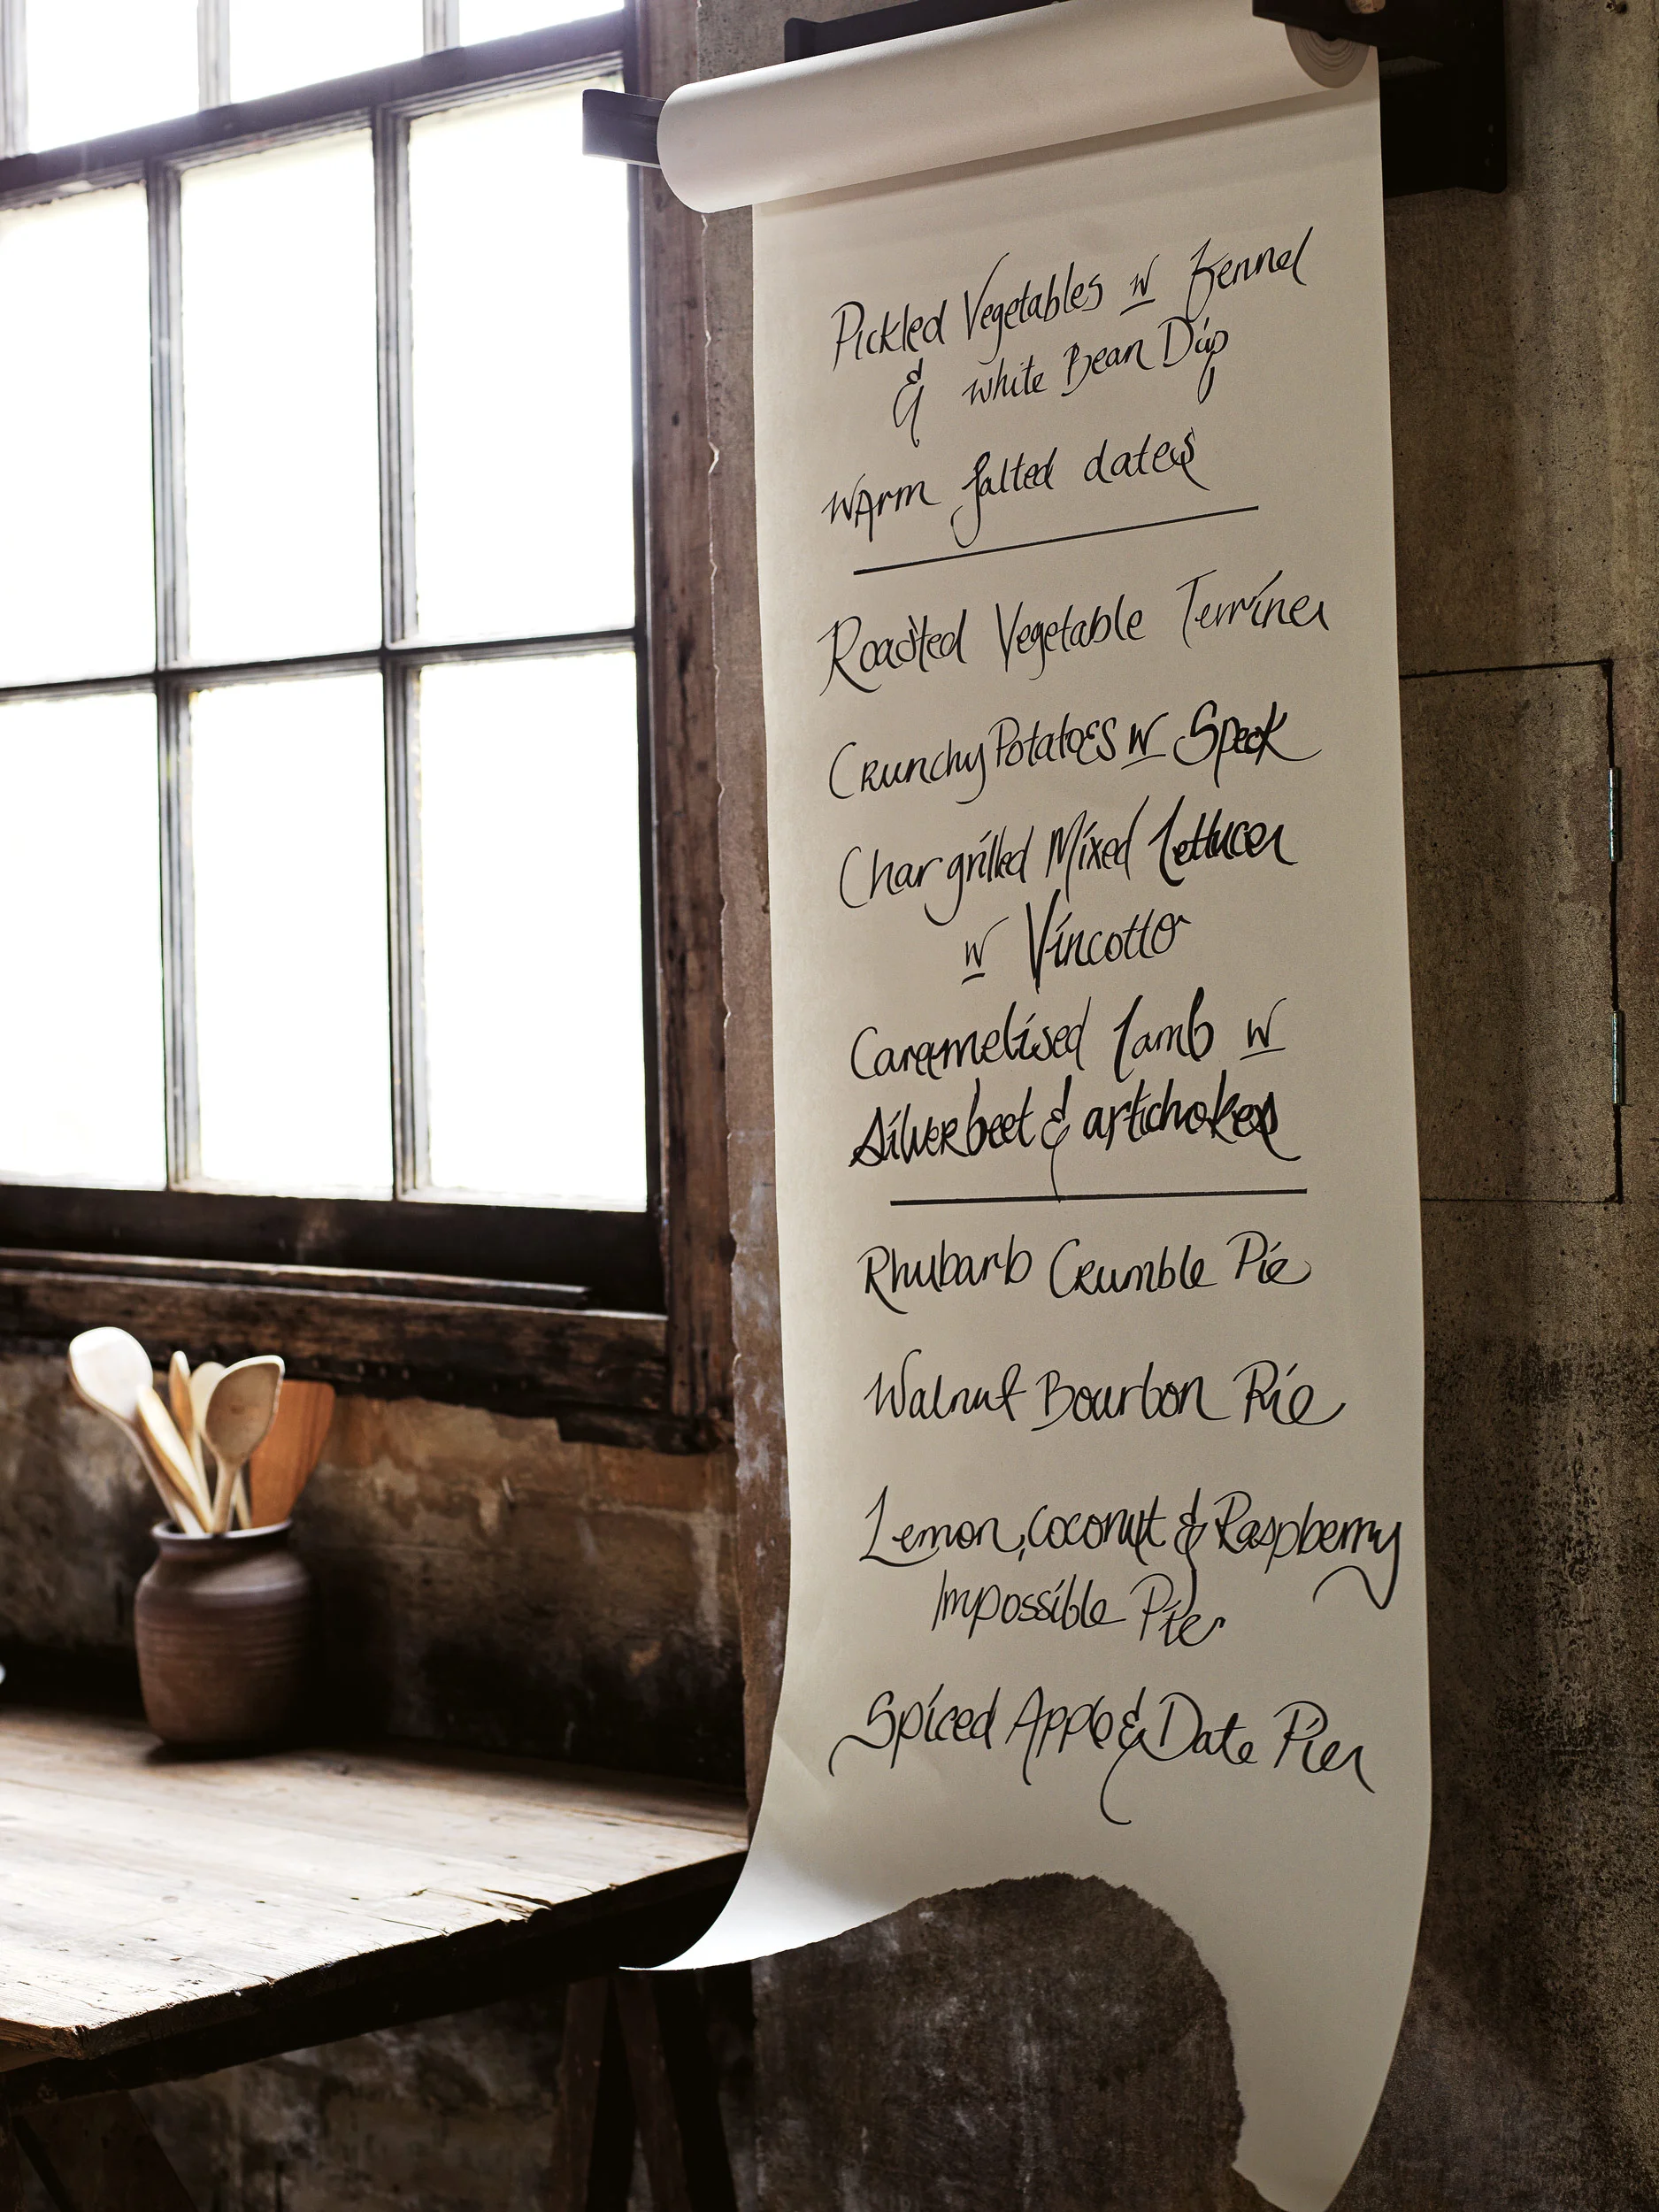 Pickled Vegetables w Fennel
& white Bean Dip
WArm salted dates
Roasted Vegetable Terrines
Crunchy Potatoes w Speck
Char grilled Mixed Lettuces
w Vincotto
Caramelised Lamb w
Silverbeet & artichokes
Rhubarb Crumble Pie
Walnut Bourbon Pie
Lemon, coconut & Raspberry
Impossible Pies
Spiced Apple & Date Pies